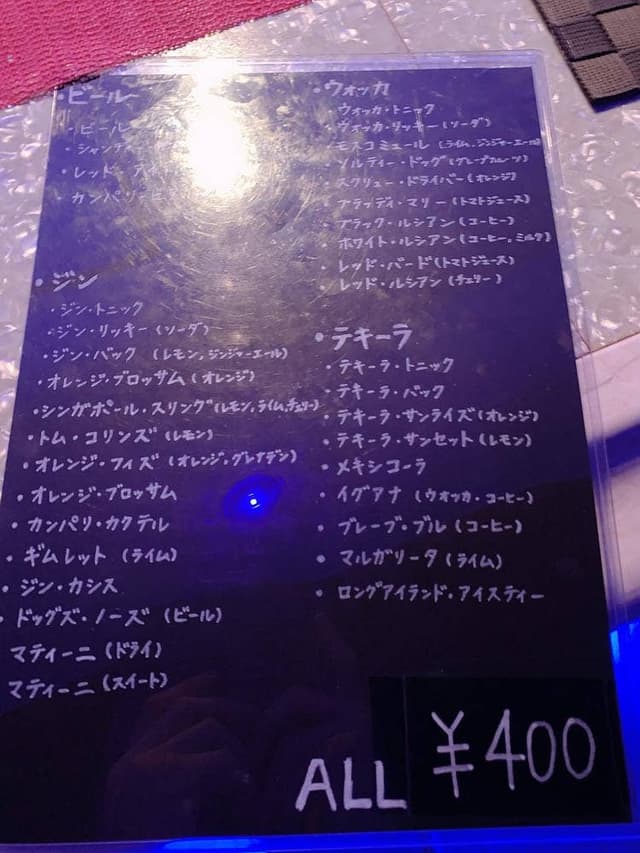 ・ビール
・ビール
・シャンディ
・レッド・アイ
・カンパリ・ビ
・ジン
・ジン・トニック
・ジン・リッキー(ソーダ)
・ジン・バック (レモン,ジンジャーエール)
・オレンジ・ブロッサム(オレンジ)
・シンガポール・スリング(レモン,ライム,チェリー)
・トム・コリンズ(レモン)
・オレンジ・フィズ(オレンジ,グレナデン)
・オレンジ・ブロッサム
・カンパリ・カクテル
・ギムレット (ライム)
・ジン・カシス
・ドッグズ・ノーズ (ビール)
マティーニ (ドライ)
マティーニ (スイート)
・ウォッカ
・ウォッカ・トニック
・ヴォッカ・リッキー(ソーダ)
・モスコミュール (ライム,ジンジャーエール)
・ソルティー・ドッグ(グレープフルーツ)
・スクリュー・ドライバー(オレンジ)
・ブラッディ・マリー(トマトジュース)
・ブラック・ルシアン(コーヒー)
・ホワイト・ルシアン(コーヒー,ミルク)
・レッド・バード(トマトジュース)
・レッド・ルシアン(チェリー)
・テキーラ
・テキーラ・トニック
・テキーラ・バック
・テキーラ・サンライズ(オレンジ)
・テキーラ・サンセット(レモン)
・メキシコーラ
・イグアナ (ウォッカ・コーヒー)
・ブレーブ・ブル(コーヒー)
・マルガリータ(ライム)
・ロングアイランド・アイスティー
ALL ¥400